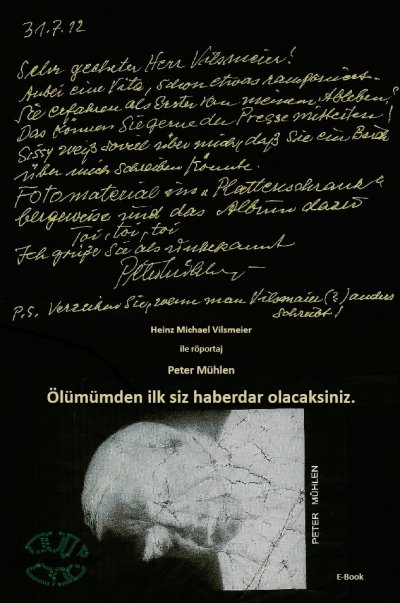 31.7.12
Sehr geehrter Herr Vilsmeier!
Anbei eine Vita, schon etwas ramponiert.
Sie erfahren als Erster von meinem Ableben.
Das können Sie gerne der Presse mitteilen!
Sissy weiß soviel über mich, daß Sie ein Buch
über mich schreiben könnte.
Fotomaterial ins "Plattenschrank"
bergeweise und das Album dazu
Toi, toi, toi
Ich grüße Sie als unbekannt
P.S. Verzeihen Sie, wenn man Vilsmaier (?) anders
schreibt!
Heinz Michael Vilsmeier
ile röportaj
Peter Mühlen
Ölümümden ilk siz haberdar olacaksiniz.
PETER MÜHLEN
E-Book